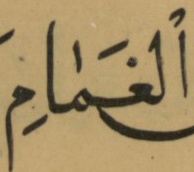 ٱلغَمَامِ